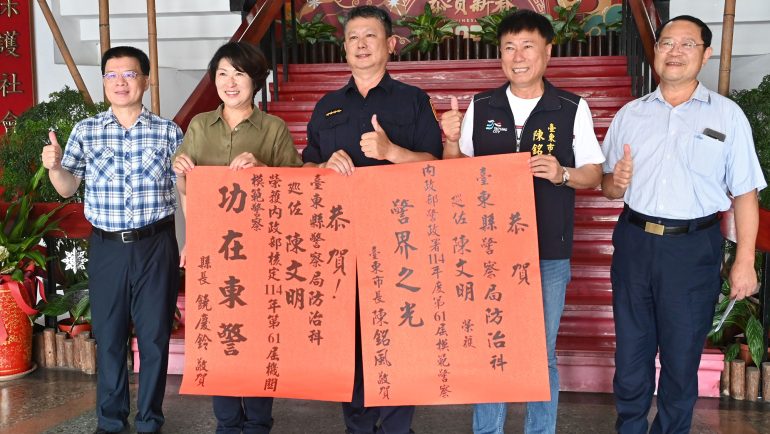 恭賀新
恭賀
臺東縣警察局防治科
巡佐 陳文明 榮獲
內政部警政署114年度第61屆模範警察
警界之光
臺東市長 陳銘風 敬賀
恭賀!
臺東縣警察局防治科
巡佐 陳文明
榮獲內政部核定114年第61屆機關
模範警察
功在東警
縣長 饒慶鈴 敬賀
臺東市
陳銘
護社會